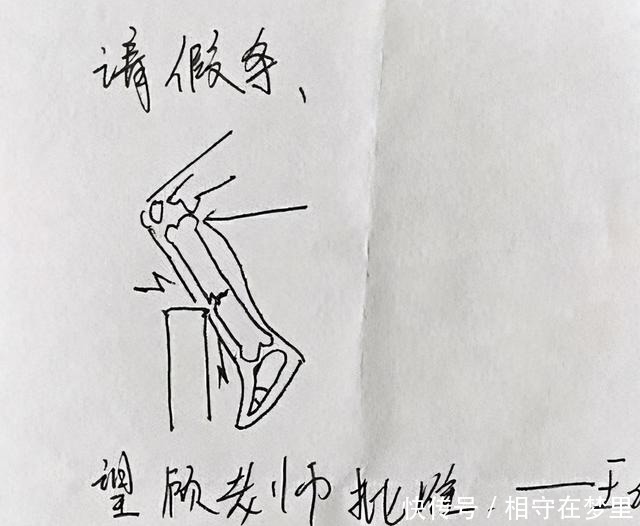 请假条、
望顾老师批准 ——王
快传号/相守在梦里